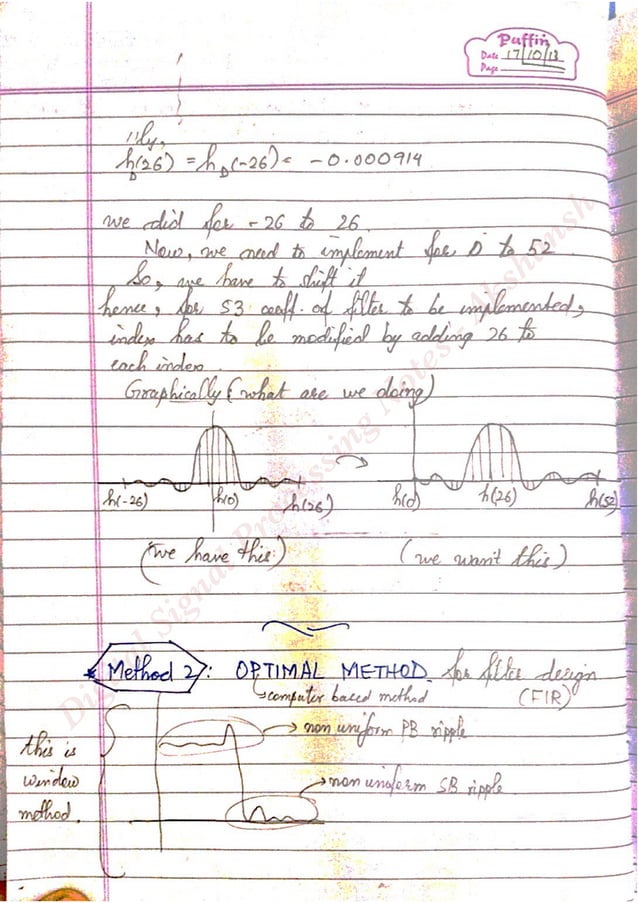 Puffin
Date 17/10/13
Page
11ly,
h_D(26) = h_D(-26) = -0.000914
we did for -26 to 26.
Now, we need to implement for 0 to 52
So, we have to shift it
hence, for 53 coeff. of filter to be implemented,
index has to be modified by adding 26 to
each index.
Graphically (what are we doing)
h(-26) h(0) h(26) h(0) h(26) h(52)
(we have this) (we want this)
* Method 2: OPTIMAL METHOD for filter design
computer based method (FIR)
non uniform PB ripple
this is
window
method.
non uniform SB ripple
Digital Signal Processing Notes - Akshansh